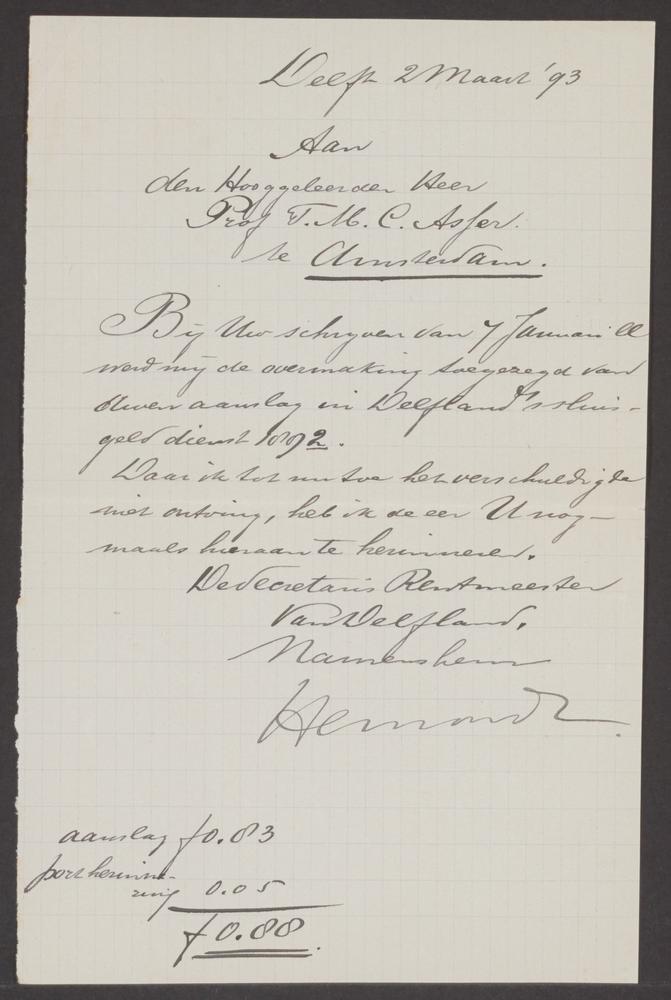 Delft 2 Maart '93
Aan
den Hooggeleerden Heer
Prof T. M. C. Asser.
te Amsterdam.
Bij Uw schrijven van 7 Januari ll
werd mij de overmaking toegezegd van
Uwen aanslag in Delfland's sluis-
geld dienst 1892.
Daar ik tot nu toe het verschuldigde
niet ontving, heb ik de eer U nog-
maals hieraan te herinneren.
De Secretaris Rentmeester
van Delfland,
Namens hem
aanslag f 0.83
port herinne-
ring 0.05
f 0.88.